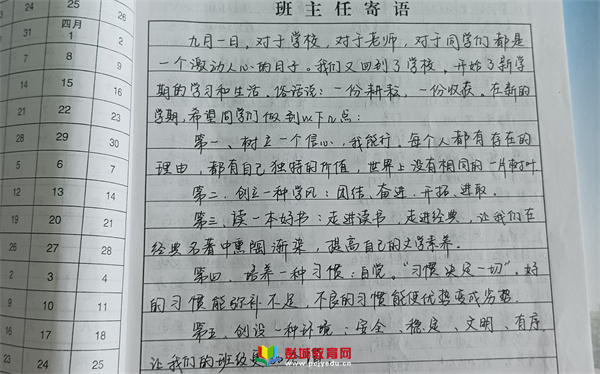 班主任寄语
九月一日,对于学校,对于老师,对于同学们都是
一个激动人心的日子。我们又回到了学校,开始了新学
期的学习和生活。俗话说:一份耕耘,一份收获。在新的
学期,希望同学们做到以下几点:
第一、树立一个信心:我能行。每个人都有存在的
理由,都有自己独特的价值,世界上没有相同的一片树叶
第二、创立一种学风:团结、奋进、开拓、进取。
第三、读一本好书:走进读书,走进经典,让我们在
经典名著中熏陶渐染,提高自己的文学素养。
第四、培养一种习惯:自觉。"习惯决定一切"。好
的习惯能弥补不足,不良的习惯能使优势变成劣势。
第五、创设一种环境:安全、稳定、文明、有序,
让我们的班级更
四月
24 25 26
1 2
31 1 2
7 8 9
14 15 16
21 22 23
28 29 30
5 6 7
12 13 14
19 20 21
26 27 28
2 3 4
9 10 11
16 17 18
23 24 25
彭城教育网
www.pcjyedu.cn